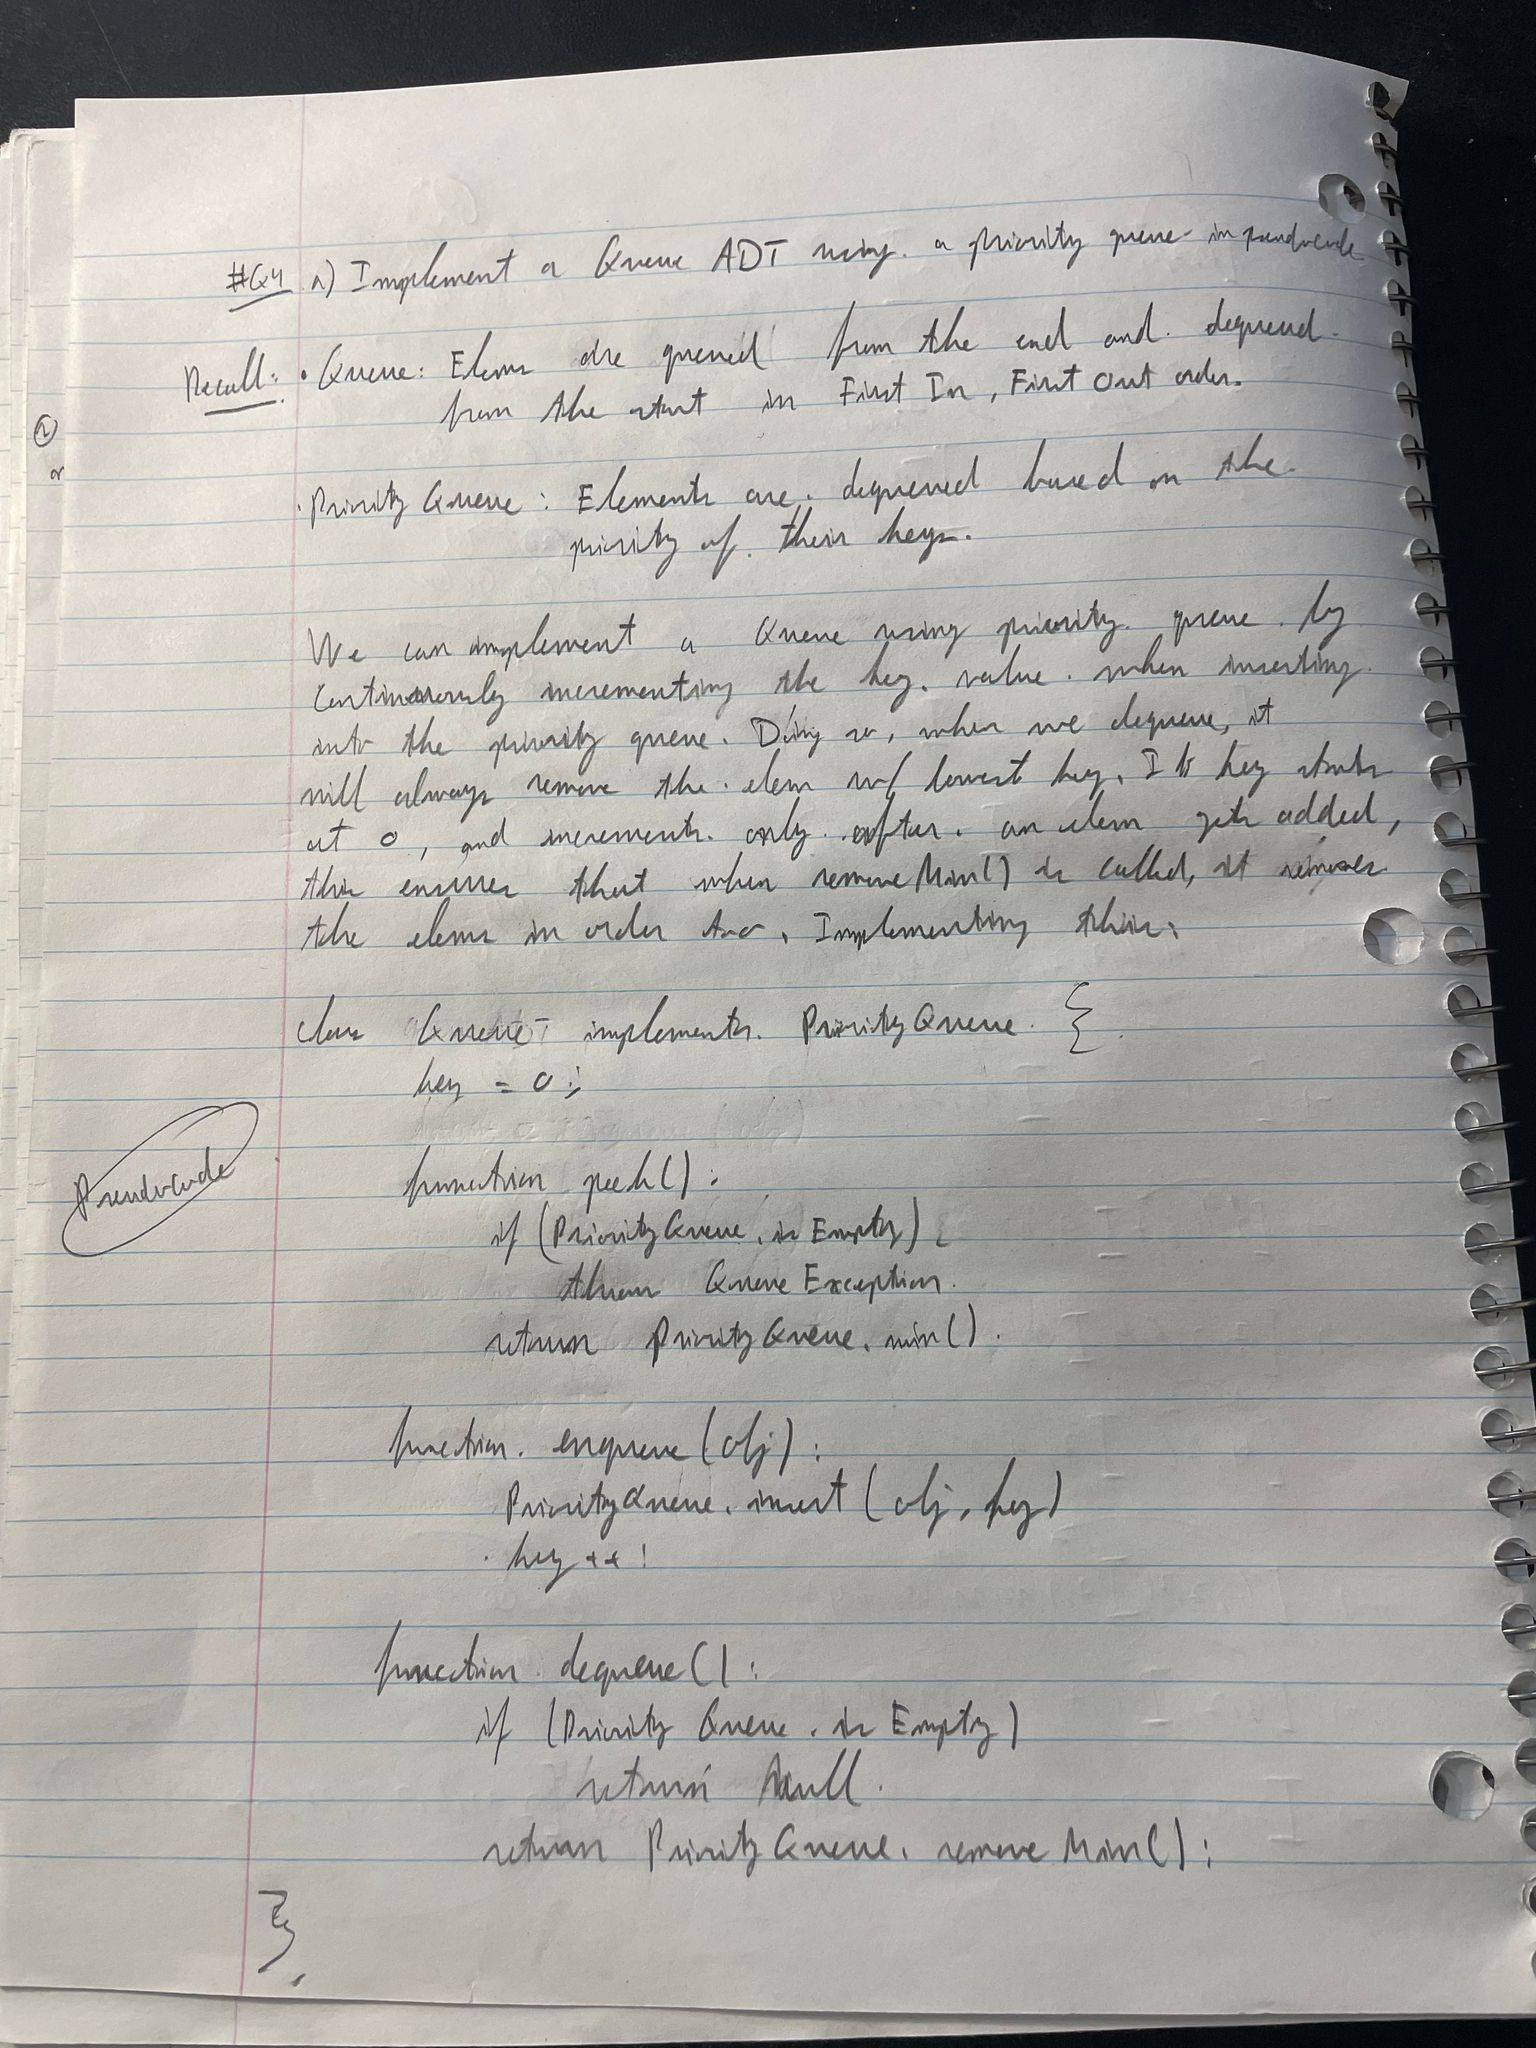 #Q4 a) Implement a Queue ADT using a priority queue in pseudocode
Recall: • Queue: Elems are queued from the end and dequeued
from the start in First In, First Out order.
• Priority Queue: Elements are dequeued based on the
priority of their keys.
We can implement a Queue using priority queue by
continuously incrementing the key value when inserting
into the priority queue. Doing so, when we dequeue, it
will always remove the elem w/ lowest key. If key starts
at 0, and increments only after an elem gets added,
this ensures that when removeMin() is called, it removes
the elems in order too. Implementing this:
class Queue implements PriorityQueue {
key = 0;
Pseudocode
function peek():
if (PriorityQueue.isEmpty)
throw QueueException
return PriorityQueue.min().
function enqueue(obj):
PriorityQueue.insert(obj, key)
key++;
function dequeue():
if (PriorityQueue.isEmpty)
return Null.
return PriorityQueue.removeMin();
}
2
or